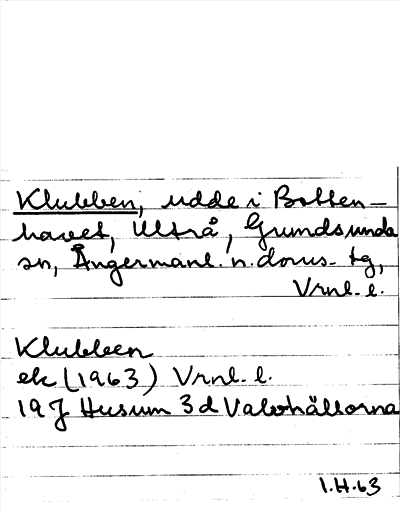 Klubben, udde i Botten-
havet, Ultrå, Grundsunda
sn, Ångermanl. n. doms. tg,
Vrnl. l.
Klubben
ek (1963) Vrnl. l.
19 J Husum 3 d Valohällorna
I.H.63